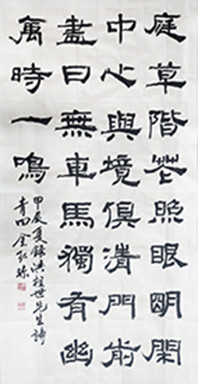 庭草階花照眼明閑
中心與境俱淸門前
盡日無車馬獨有幽
禽時一鳴
甲辰夏錄洪柱世先生詩
金